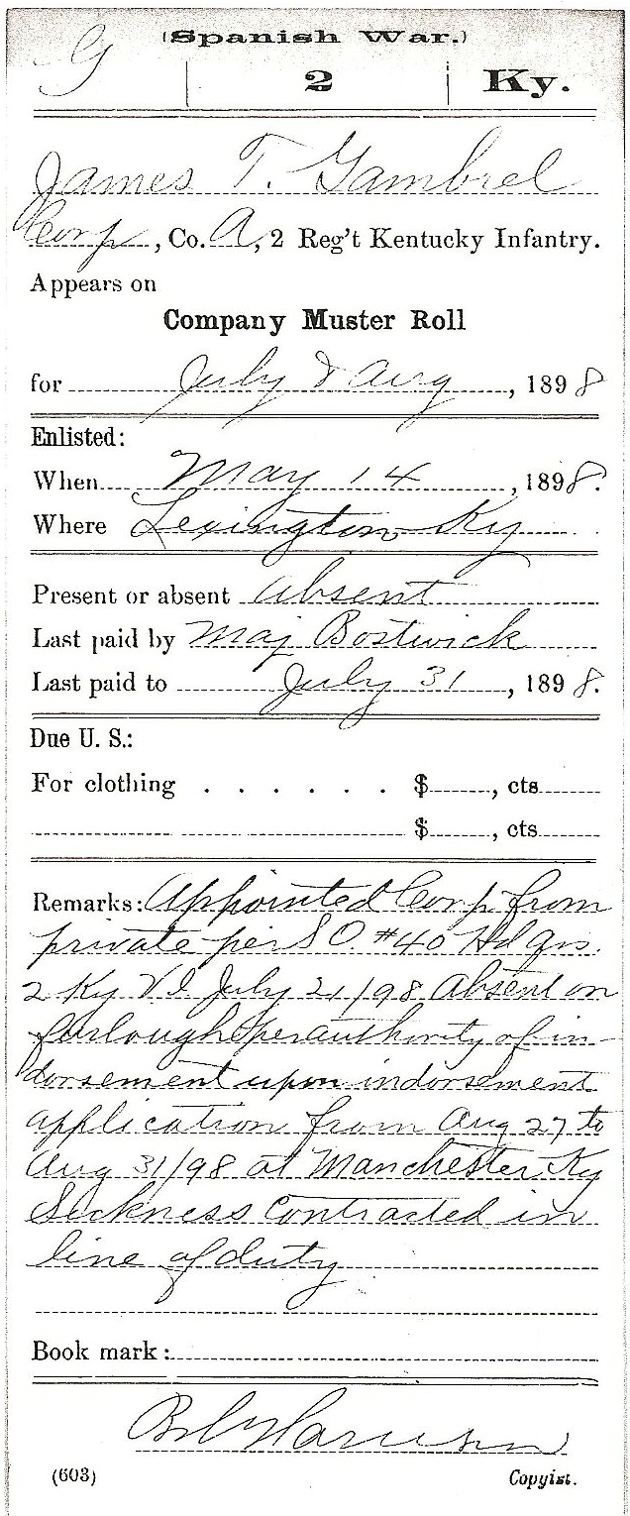 (Spanish War.)
G 2 Ky.
James T. Gambrel
Corp, Co. A, 2 Reg't Kentucky Infantry.
Appears on
Company Muster Roll
for July & Aug, 1898
Enlisted:
When May 14, 1898.
Where Lexington Ky
Present or absent Absent
Last paid by Maj Bostwick
Last paid to July 31, 1898.
Due U. S.:
For clothing . . . . . . $ , cts
$ , cts
Remarks: Appointed Corp from
private per S O. #40 Hdqrs.
2 Ky V I July 21/98 Absent on
furlough per authority of in-
dorsement upon indorsement
application from Aug 27 to
Aug 31/98 at Manchester Ky
Sickness contracted in
line of duty
Book mark:
Harrison
(603) Copyist.